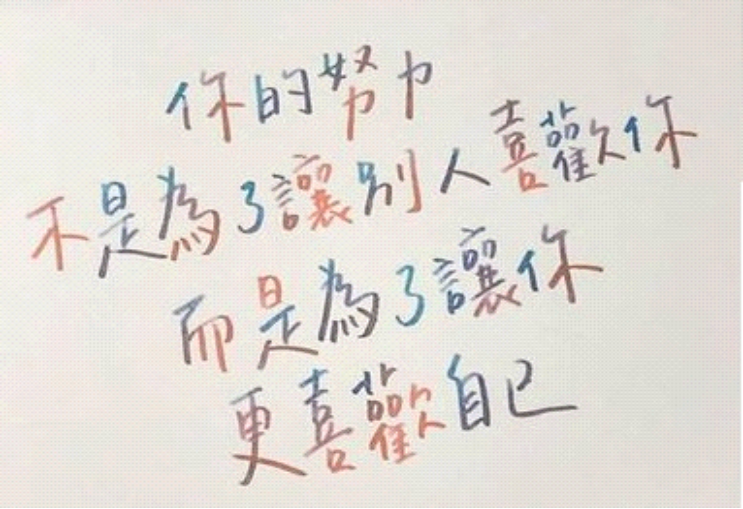 你的努力
不是為了讓別人喜歡你
而是為了讓你
更喜歡自己